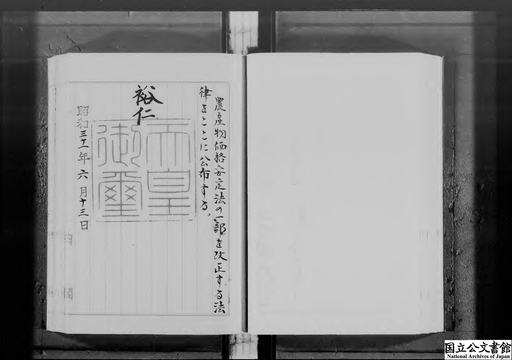 農産物価格安定法の一部を改正する法
律をここに公布する。
裕仁
天皇
御璽
昭和三十一年六月十三日
国立公文書館
National Archives of Japan